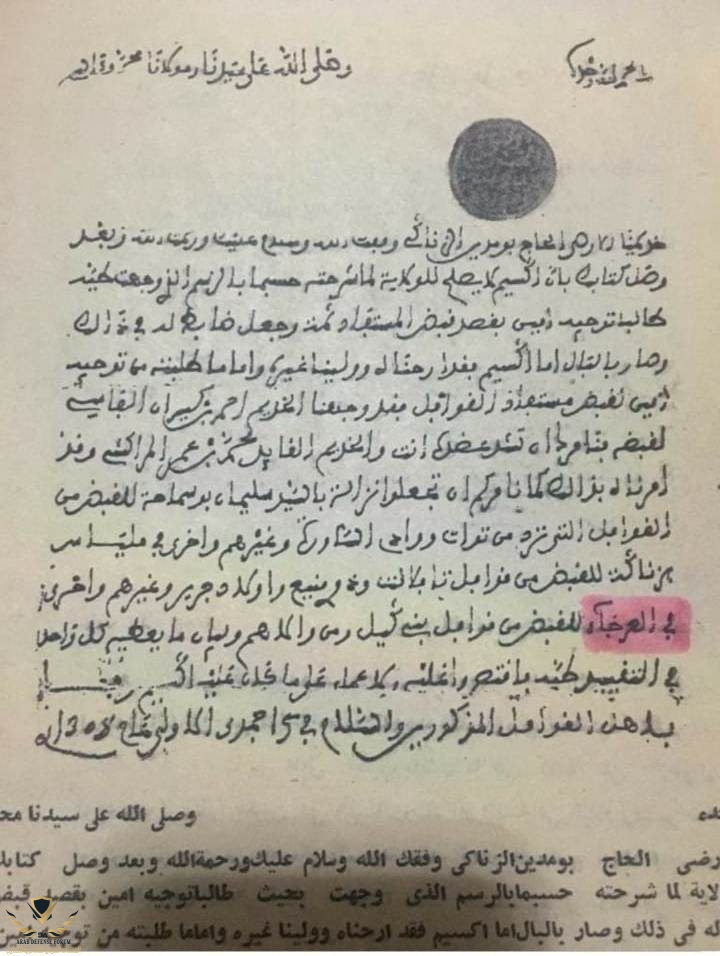 الحمد لله وحده
وصلى الله على سيدنا ومولانا محمد وآله
خديمنا الارضى الحاج بومدين الزناكي وفقك الله وسلام عليك ورحمة الله وبعد
وصل كتابك بان اكسيم لا يصلح للولاية لما شرحته حسبما بالرسم الذي وجهت طيه
طالبا توجيه امين بقصد قبض المستفاد ثمة وجعل ضابط له في ذلك
وصار بالبال اما اكسيم فقد ارحناه وولينا غيره واما ما طلبته من توجيه
امين لقبض مستفاد القوافل فقد وجهنا الخديم احمد بن كيران الفاسي
لقبضه بنا مرجا ان تشد عضده انت والخديم القايد محمد بن عمر المراكشي وقد
امرناه بذلك كما نامركم ان تجعلوا نزالة بالسيد سليمان بوسماحة للقبض من
القوافل التي ترد من توات وواد الساورة وغيرهم واخرى في
للقبض من قوافل تافلالت وذوي منيع واولاد جرير وغيرهم واخرى
في العرجة للقبض من قوافل بني كيل ومن والاهم وبيان ما يعطيه كل واحد
في التقييد طيه على ما
هذه القوافل المذكورين والسلام في جمدى الاولى عام 1308
نده وصلى الله على سيدنا مح
رضى الحاج بومدين الزناكى وفقك الله وسلام عليك ورحمة الله وبعد وصل كتابك
لاية لما شرحته حسبما بالرسم الذى وجهت بحيث طالبا توجيه امين بقصد قبض
له فى ذلك وصار بالبال اما اكسيم فقد ارحناه وولينا غيره واما ما طلبته من
ARAB DEFENSE FORUM